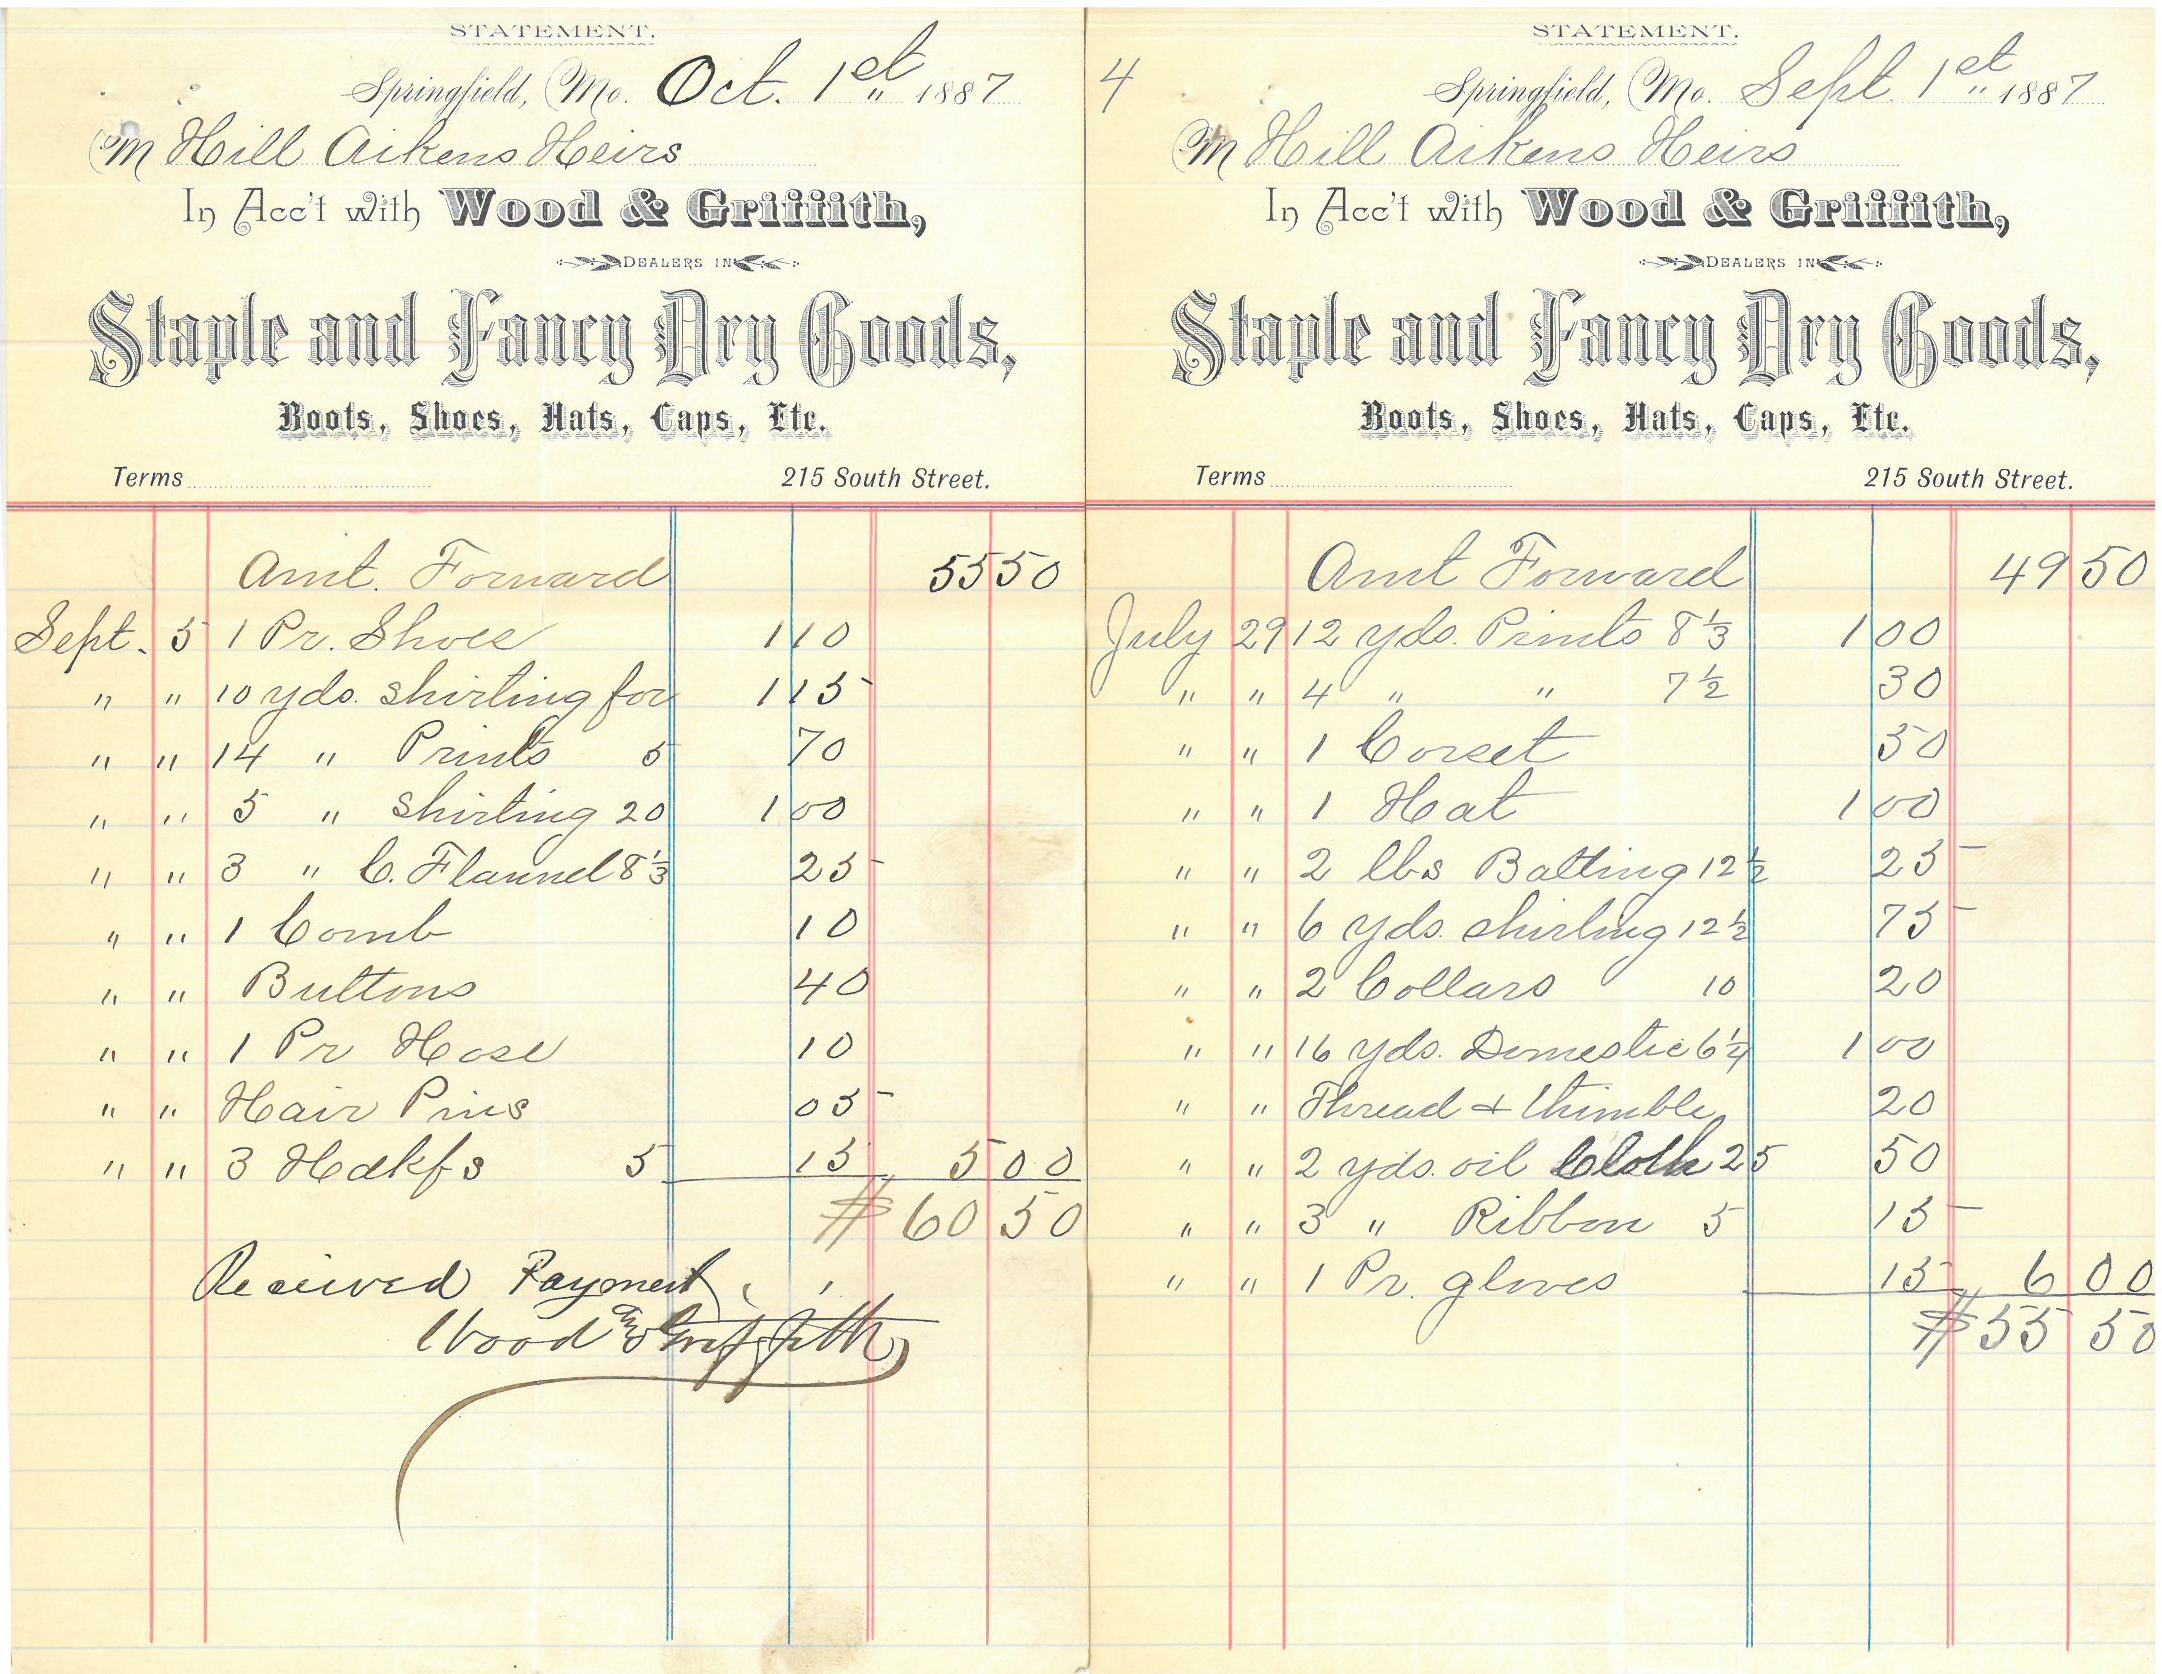 STATEMENT.
Springfield, Mo. Oct. 1st 1887
M Hill Aikens Heirs
In Acc't with Wood & Griffith,
DEALERS IN
Staple and Fancy Dry Goods,
Boots, Shoes, Hats, Caps, Etc.
Terms 215 South Street.
Amt. Forward 55 50
Sept. 5 1 Pr. Shoes 1 10
" " 10 yds. shirting for 1 15
" " 14 " Prints 5 70
" " 5 " shirting 20 1 00
" " 3 " C. Flannel 8 1/3 25
" " 1 Comb 10
" " Buttons 40
" " 1 Pr Hose 10
" " Hair Pins 05
" " 3 Hdkfs 5 15 5 00
$ 60 50
Received Payment
Wood & Griffith
STATEMENT.
4 Springfield, Mo. Sept. 1st 1887
M Hill Aikens Heirs
In Acc't with Wood & Griffith,
DEALERS IN
Staple and Fancy Dry Goods,
Boots, Shoes, Hats, Caps, Etc.
Terms 215 South Street.
Amt Forward 49 50
July 29 12 yds. Prints 8 1/3 1 00
" " 4 " " 7 1/2 30
" " 1 Corset 50
" " 1 Hat 1 00
" " 2 lbs Batting 12 1/2 25
" " 6 yds. shirting 12 1/2 75
" " 2 Collars 10 20
" " 16 yds. Domestic 6 1/4 1 00
" " Thread & thimble 20
" " 2 yds. oil Cloth 25 50
" " 3 " Ribbon 5 15
" " 1 Pr. gloves 15 6 00
$ 55 50